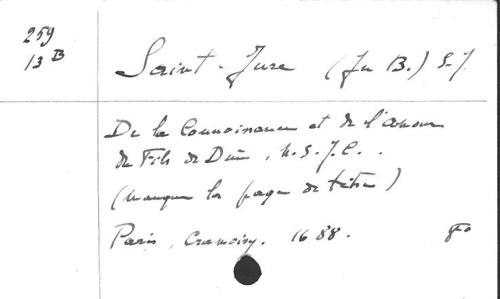 259
13 B
Saint-Jure (Jn B.) S.J.
De la Connoissance et de l'amour
du Fils de Dieu, N.S.J.C..
(manque la page de titre)
Paris, Cramoisy. 1688. 8o